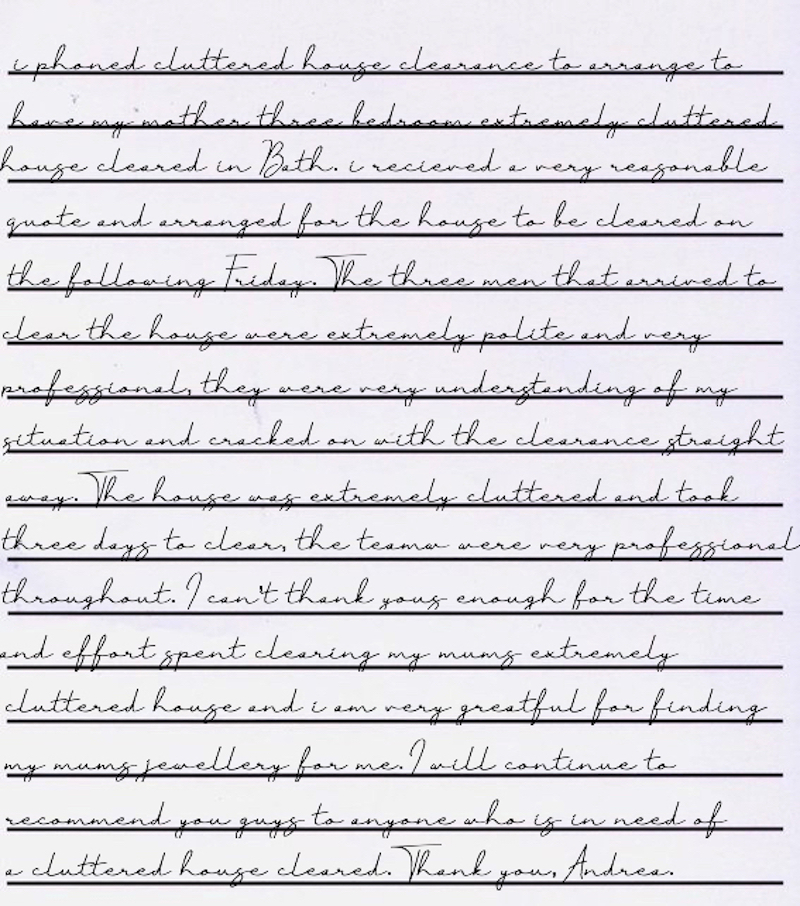 i phoned cluttered house clearance to arrange to
have my mother three bedroom extremely cluttered
house cleared in Bath. i recieved a very reasonable
quote and arranged for the house to be cleared on
the following Friday. The three men that arrived to
clear the house were extremely polite and very
professional, they were very understanding of my
situation and cracked on with the clearance straight
away. The house was extremely cluttered and took
three days to clear, the teamw were very professional
throughout. I can't thank yous enough for the time
and effort spent clearing my mums extremely
cluttered house and i am very greatful for finding
my mums jewellery for me. I will continue to
recommend you guys to anyone who is in need of
a cluttered house cleared. Thank you, Andrea.